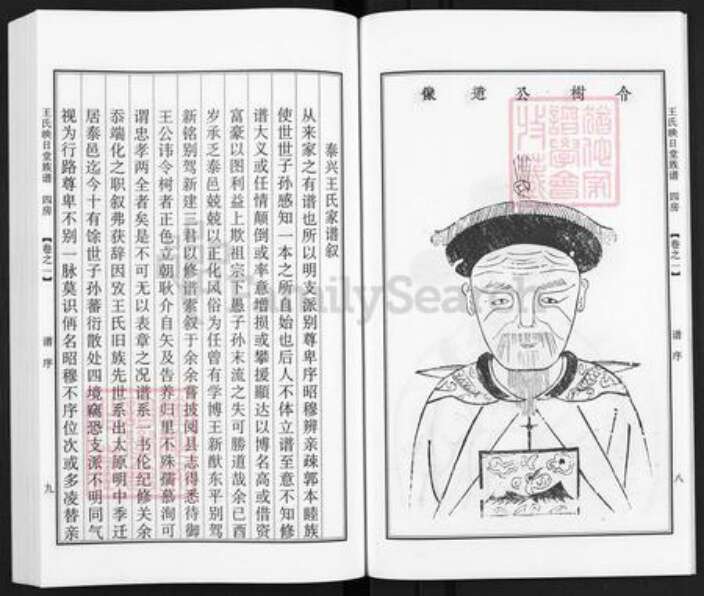 令树公遗像
王氏映日堂族谱 四房 【卷之一】 谱序 八
泰兴王氏家谱叙
从来家之有谱也所以明支派别尊卑序昭穆辨亲疏郭本睦族
使世世子孙感知一本之所自始也后人不体立谱至意不知修
谱大义或任情颠倒或率意增损或攀援顯达以博名高或借资
富豪以图利益上欺祖宗下愚子孙末流之失可胜道哉余已酉
岁承乏泰邑兢兢以正化风俗为任曾有学博王新猷东平别驾
新铭别驾新建三君以修谱索叙于余余嘗披阅县志得悉待御
王公讳令树者正色立朝耿介自矢及告养归里不殊孺慕洵可
谓忠孝两全者矣是不可无以表章之况谱系一书伦纪修关余
忝端化之职叙弗获辞因攷王氏旧族先世系出太原明中季迁
居泰邑迄今十有馀世子孙蕃衍散处四境窺恐支派不明同气
视为行路尊卑不别一脉莫识俩名昭穆不序位次或多凌替亲
王氏映日堂族谱 四房 【卷之一】 谱序 九
FamilySearch